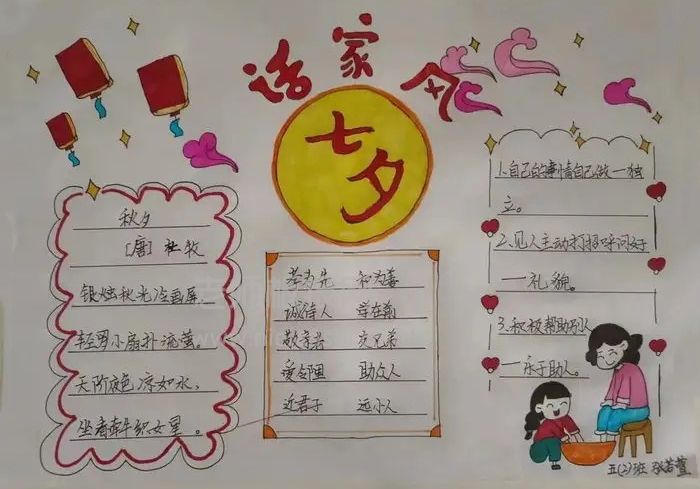 话家风
七夕
秋夕
[唐] 杜牧
银烛秋光冷画屏,
轻罗小扇扑流萤。
天阶夜色凉如水,
坐看牵牛织女星。
孝为先 和为善
诚待人 学在勤
敬 友兄弟
爱邻里 助众人
近君子 远小人
1.自己的事情自己做一独
立。
2.见人主动打招呼问好
一礼貌。
3.积极帮助
一乐于助人。
五(2)班 张若萱